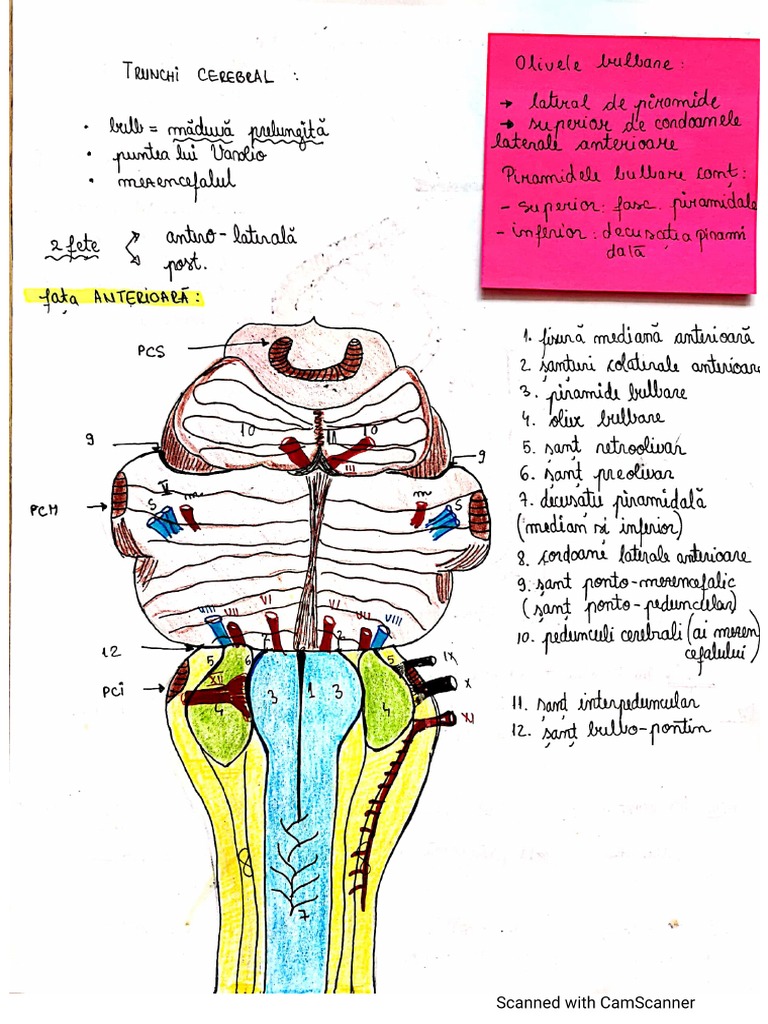 TRUNCHI CEREBRAL :
• bulb = măduvă prelungită
• puntea lui Varolio
• mezencefalul
2 fețe
antero-laterală
post.
fața ANTERIOARĂ :
Olivele bulbare :
→ lateral de piramide
→ superior de cordoanele
laterale anterioare
Piramidele bulbare conț :
- superior : fasc. piramidale
- inferior : decusația pirami
dală
PCS
10
11
10
III
9
9
V
S
m
m
S
PCM
VIII
VII
VI
VI
VII
VIII
12
2
5
6
5
IX
XII
X
PCi
3
1
3
4
4
XI
8
8
7
1. fisură mediană anterioară
2. șanțuri colaterale anterioare
3. piramide bulbare
4. olive bulbare
5. sanț retroolivar
6. sanț preolivar
7. decusație piramidală
(median și inferior)
8. cordoane laterale anterioare
9. sanț ponto-mezencefalic
(sanț ponto-peduncular)
10. pedunculi cerebrali (ai mezen
cefalului)
11. sanț interpeduncular
12. sanț bulbo-pontin
Scanned with CamScanner